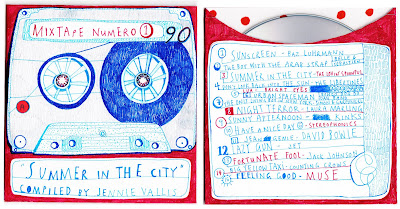 MIXTAPE NUMERO 1 90
"SUMMER IN THE CITY"
COMPILED BY JENNIE VALLIS
1 SUNSCREEN - BAZ LUHRMANN
THE BOY WITH THE ARAB STRAP BELLE &
3 SUMMER IN THE CITY - THE LOVIN' SPOONFUL
4 DON'T LOOK BACK INTO THE SUN - THE LIBERTINES
BRIGHT EYES
SPACEMAN
8 NIGHT TERROR - LAURA MARLING
SUNNY AFTERNOON - THE KINKS
10 HAVE A NICE DAY - STEREOPHONICS
11 JEAN GENIE - DAVID BOWIE
12 LAZY GUN - JET
13 FORTUNATE FOOL - JACK JOHNSON
BIG YELLOW TAXI - COUNTING CROWS
FEELING GOOD - MUSE